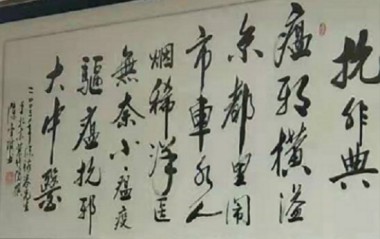 抗非典
瘟邪横溢
京都里闹
市車水人
烟稀洋医
無奈小瘟疫
驅瘟抗邪
大中醫